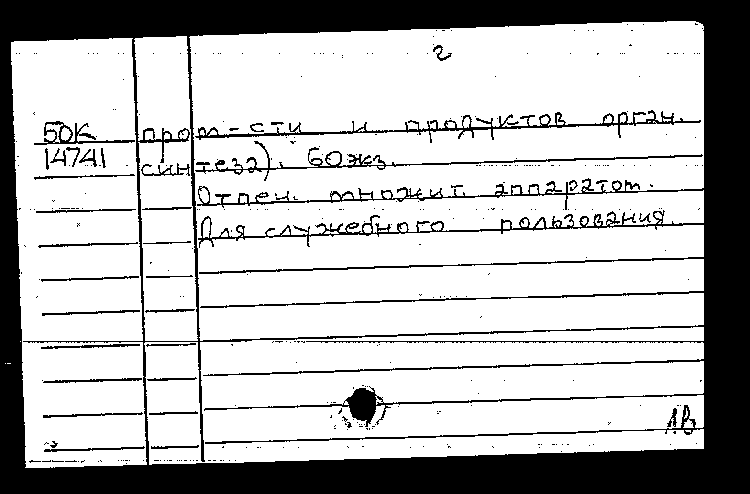 2
50К пром-сти и продуктов орган.
14741 синтеза). 60экз.
Отпеч. множит. аппаратом.
Для служебного пользования.
1в